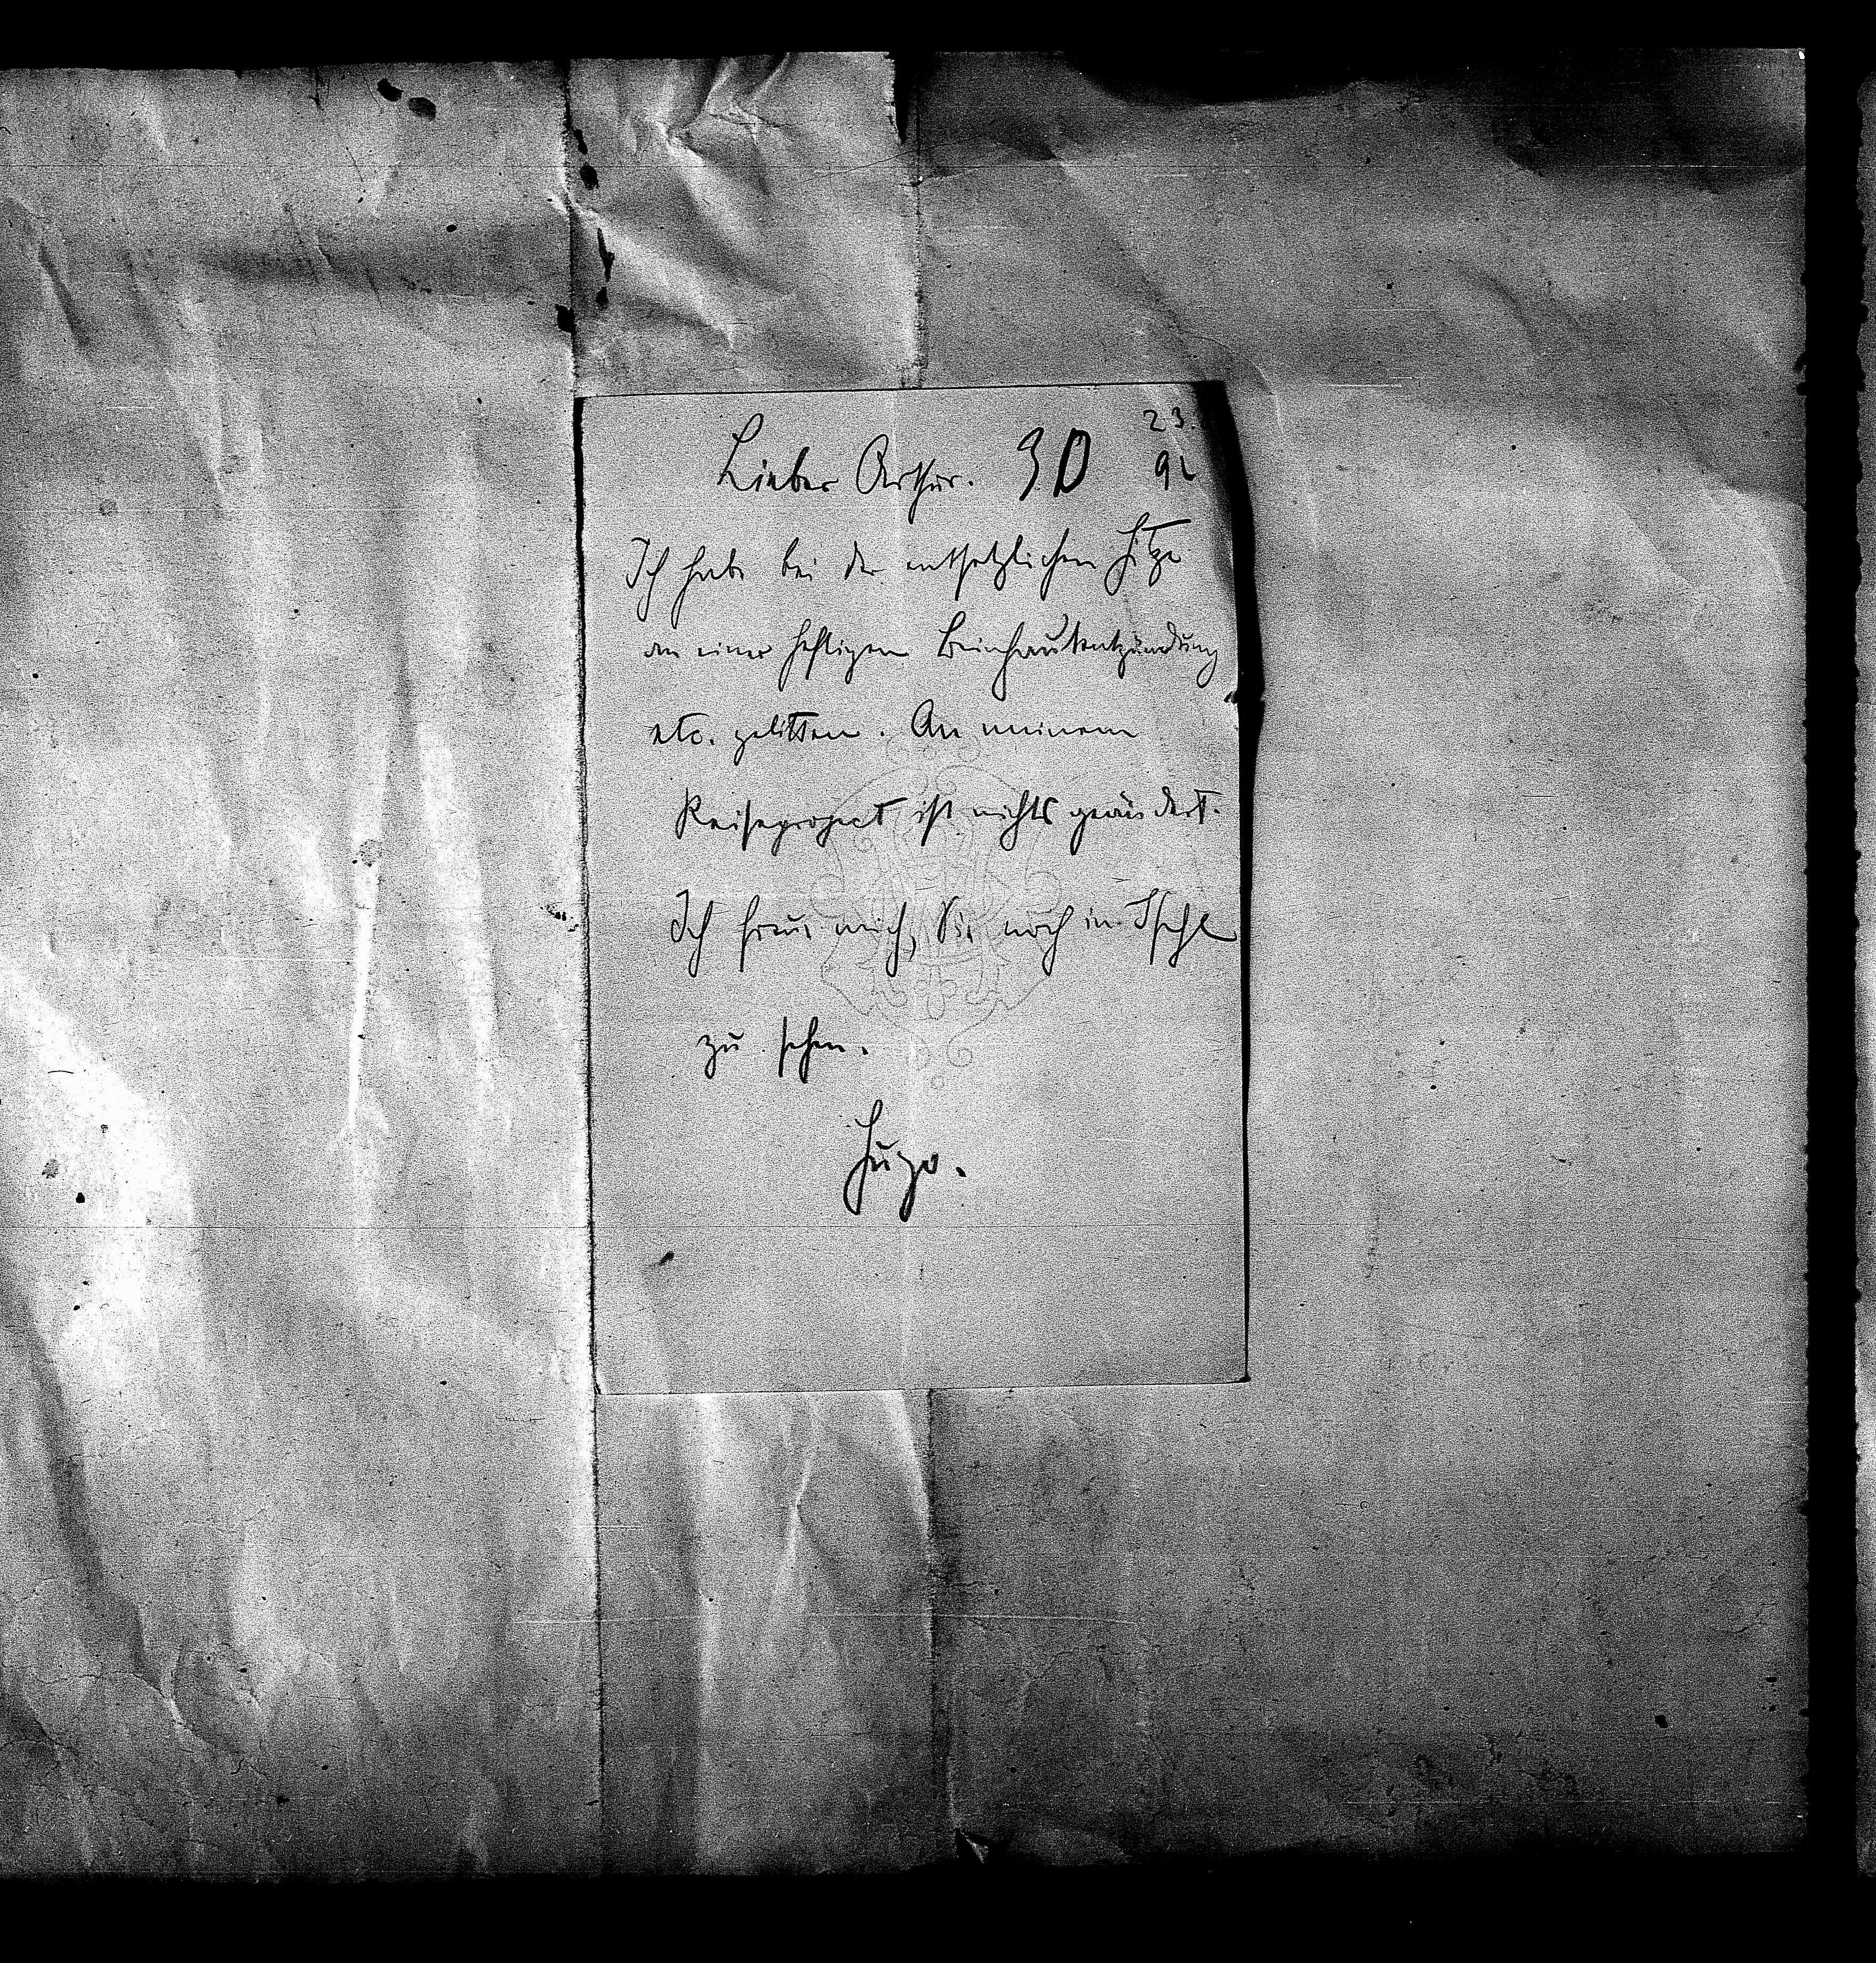 23.
Lieber Arthur. 30 92
Ich habe bei der entsetzlichen Hitze
an einer heftigen Beinhautentzündung
etc. gelitten. An meinem
Reiseproject ist nichts geändert.
Ich freue mich, Sie noch in Ischl
zu sehen.
Hugo.